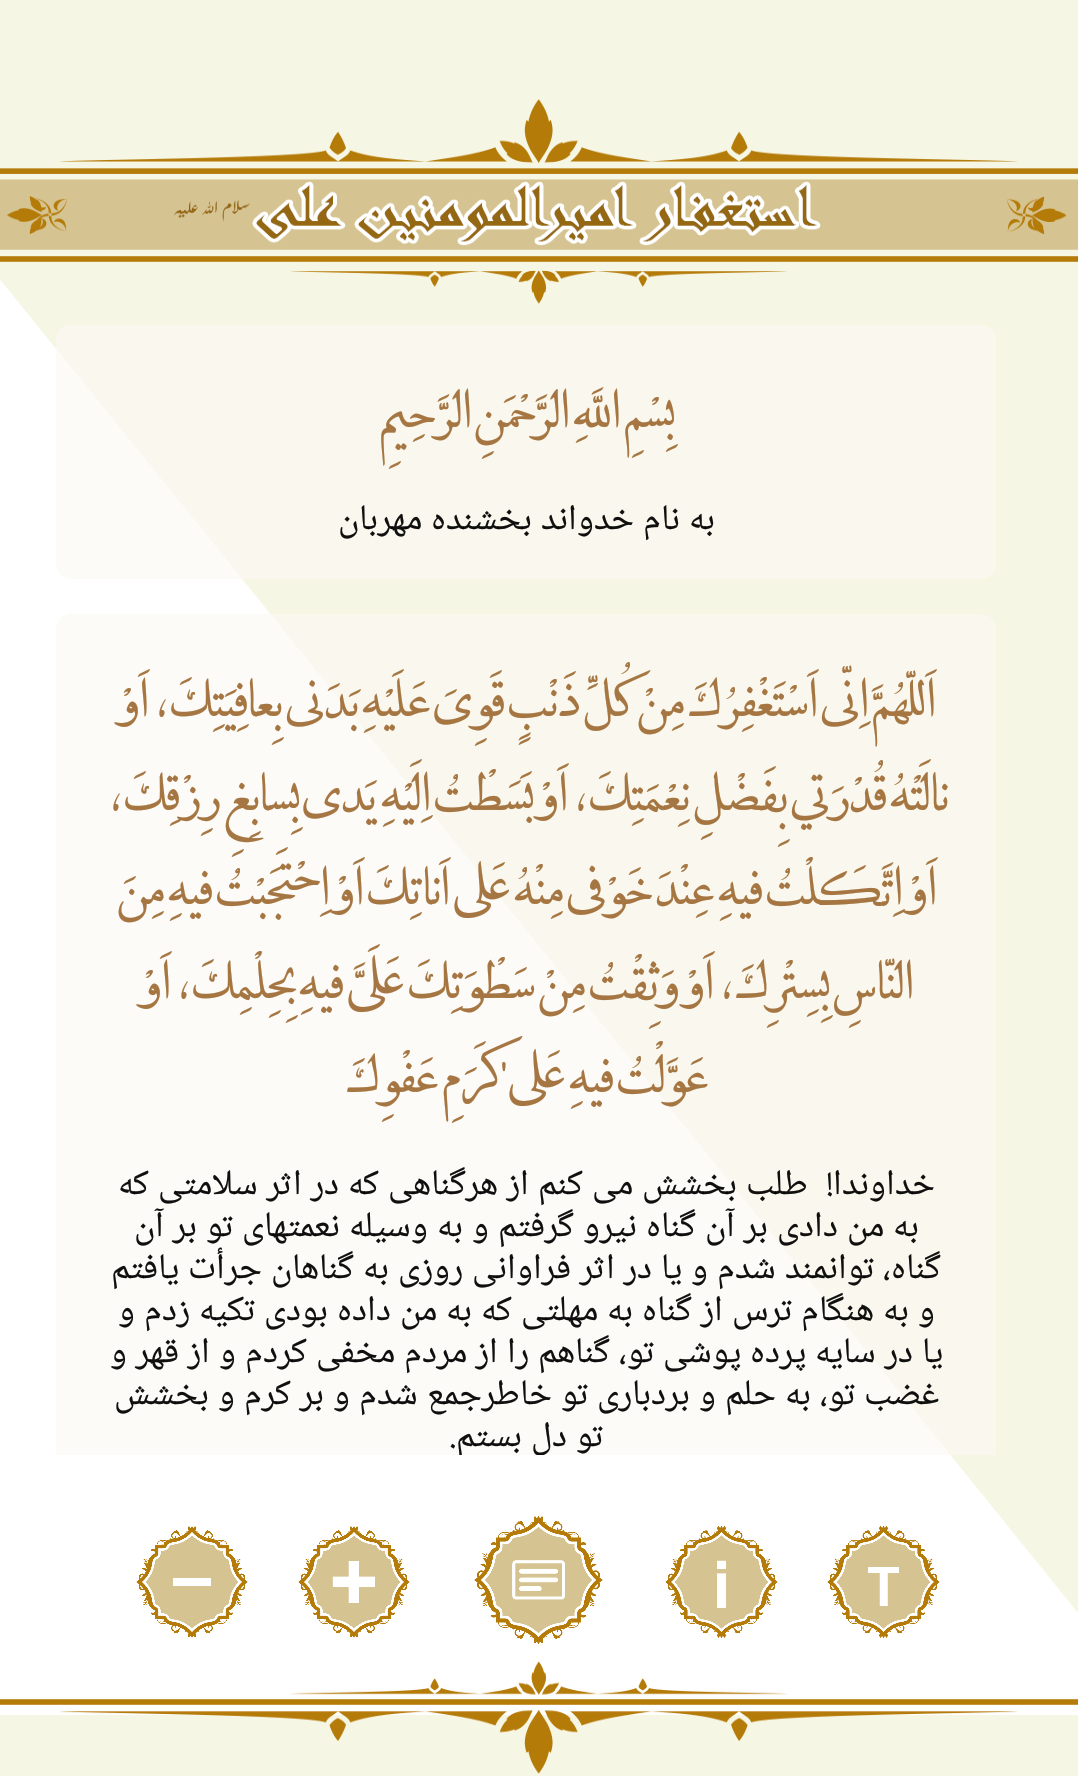 استغفار امیرالمومنین علی سلام الله علیه
بِسْمِ اللَّهِ الرَّحْمَنِ الرَّحِیمِ
به نام خدواند بخشنده مهربان
اَللّهُمَّ اِنّی اَسْتَغْفِرُكَ مِنْ كُلِّ ذَنْبٍ قَوِیَ عَلَیْهِ بَدَنی بِعافِیَتِكَ، اَوْ
نالَتْهُ قُدْرَتي بِفَضْلِ نِعْمَتِكَ، اَوْ بَسَطْتُ اِلَیْهِ یَدی بِسابِغِ رِزْقِكَ،
اَوْ اِتَّكَلْتُ فیهِ عِنْدَ خَوْفی مِنْهُ عَلی اَناتِكَ اَوْ اِحْتَجَبْتُ فیهِ مِنَ
النّاسِ بِسِتْرِكَ، اَوْ وَثِقْتُ مِنْ سَطْوَتِكَ عَلَیَّ فیهِ بِحِلْمِكَ، اَوْ
عَوَّلْتُ فیهِ عَلیٰ كَرَمِ عَفْوِكَ
خداوندا!  طلب بخشش می کنم از هرگناهی که در اثر سلامتی که
به من دادی بر آن گناه نیرو گرفتم و به وسیله نعمتهای تو بر آن
گناه، توانمند شدم و یا در اثر فراوانی روزی به گناهان جرأت یافتم
و به هنگام ترس از گناه به مهلتی که به من داده بودی تکیه زدم و
یا در سایه پرده پوشی تو، گناهم را از مردم مخفی کردم و از قهر و
غضب تو، به حلم و بردباری تو خاطرجمع شدم و بر کرم و بخشش
تو دل بستم.
− + i T